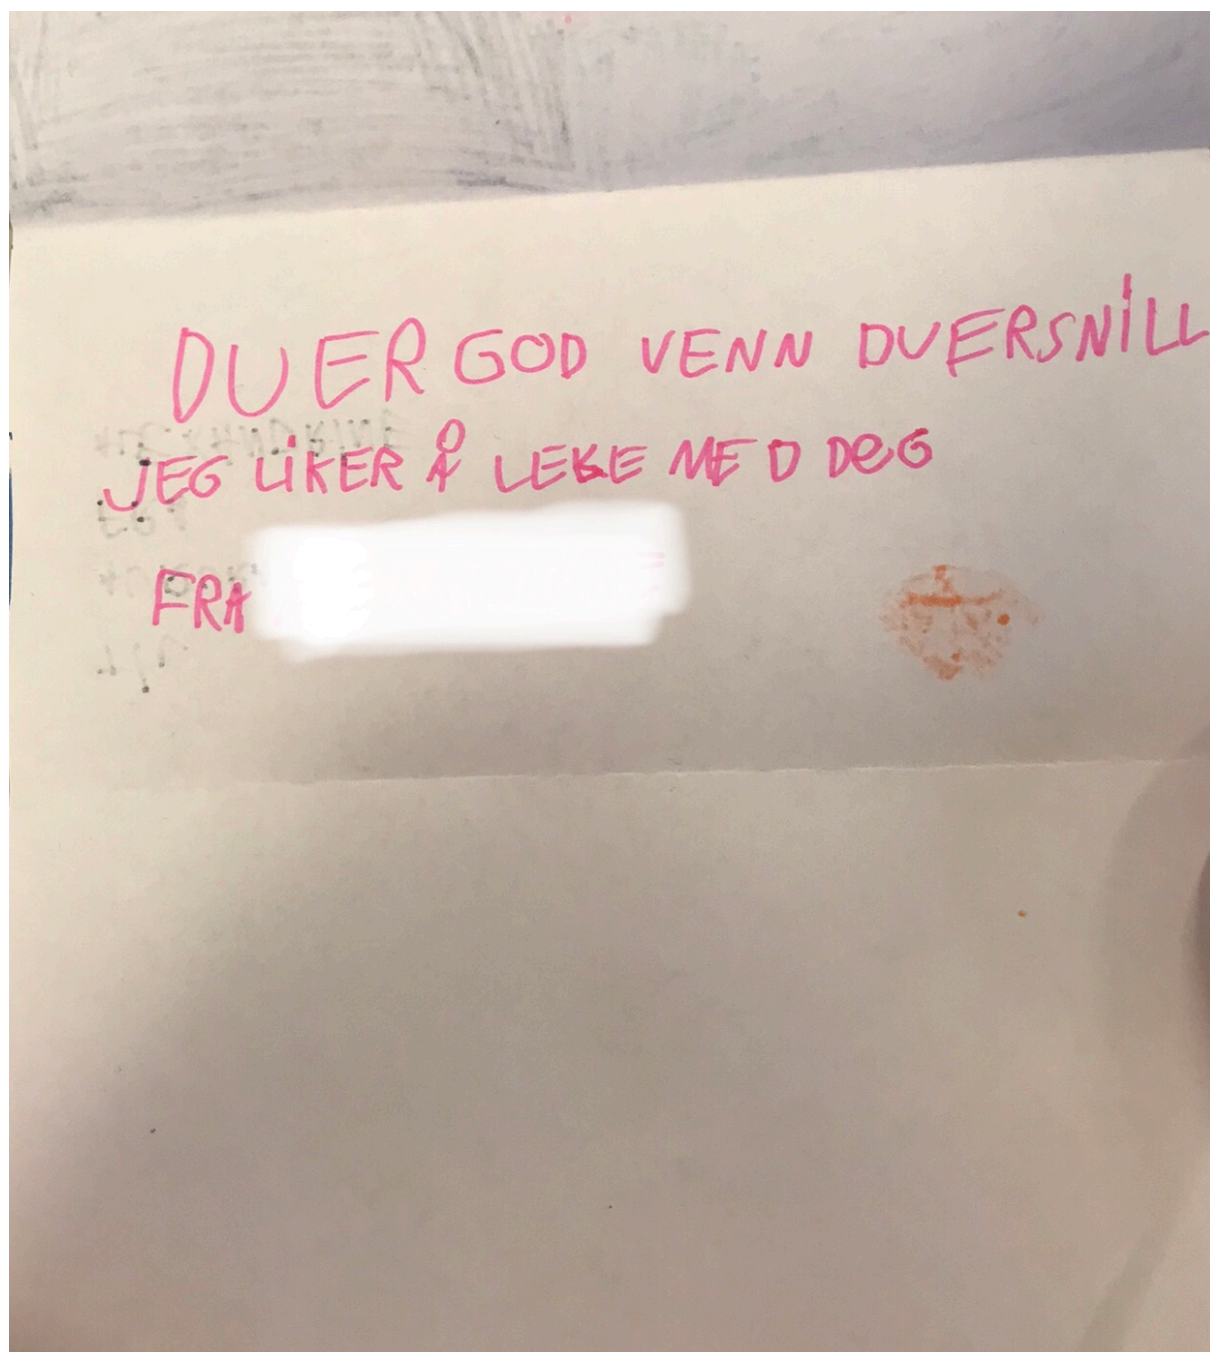 DU ER GOD VENN DU ER SNILL
JEG LiKER Å LEKE MED DeG
FRA